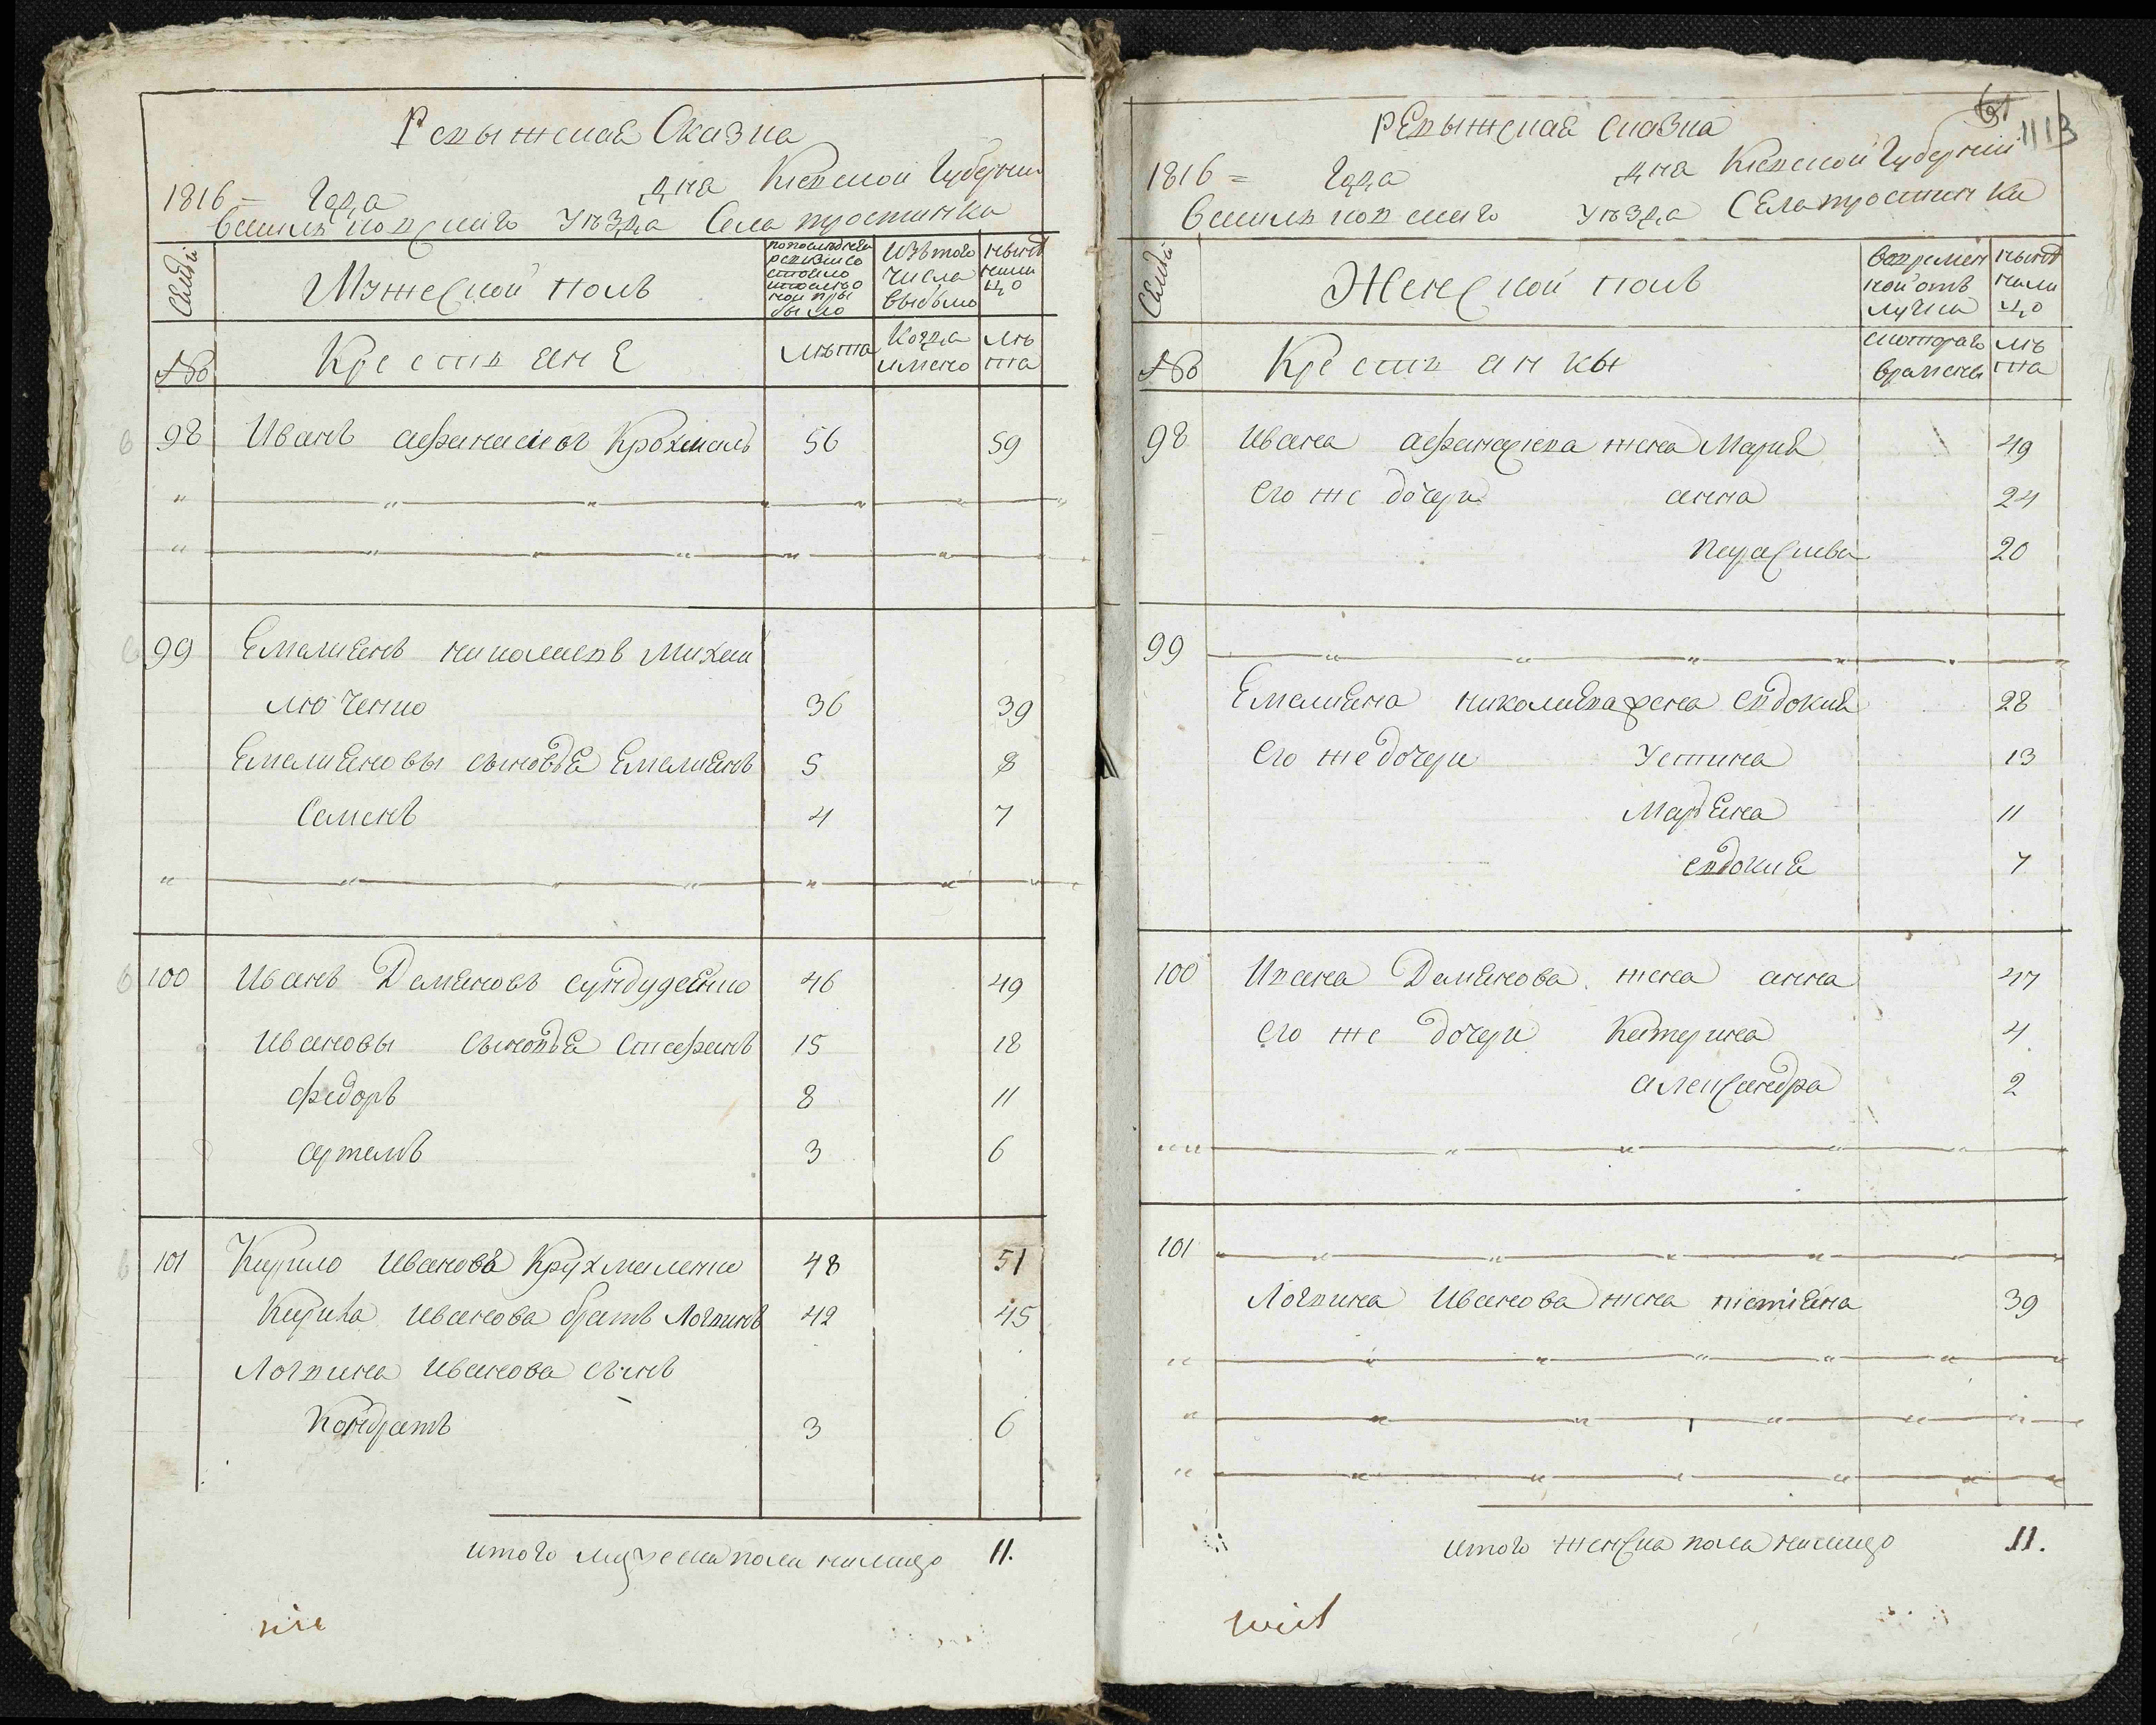 Ревыжская Сказка
1816 = Года дня Киевской Губернии
Василковскаго уѣзда Села тростинка
Семьи
Мужеской полъ
по последней ревизии состояло и после оной прыбыло
Изътого числа выбыло
нынѣ налицо
№
Крестьяне
лѣта
Когда имено
лѣта
98 Иванъ афанасиовъ Крохмаль 56 59
99 Емелиянъ николаевъ Михай
люченко 36 39
Емелияновы сыновья Емелиянъ 5 8
Семенъ 4 7
100 Иванъ Демяновъ сундуденко 46 49
Ивановы сыновья Стефанъ 15 18
федоръ 8 11
артемъ 3 6
101 Кирило Ивановъ Крухмаленко 48 51
Кирила иванова братъ Логвинъ 42 45
Логвина иванова сынъ
Кондратъ 3 6
итого мужеска пола налицо 11.
61
1113
Ревыжская сказка
1816 = Года дня Киевской Губернии
Василковскаго уѣзда Села тростинка
Семьи
Женской полъ
вовременной отлучке
нынѣ налицо
№
Крестьянкы
скоторого времены
лѣта
98 Ивана афанасиева жена Мария 49
его же дочери анна 24
Параскева 20
99
Емелияна николаева жена Евдокия 28
его же дочери Устина 13
Марьяна 11
евдокия 7
100 Ивана Демянова жена анна 47
его же дочери Катерина 4
александра 2
101
Логвина Иванова жена тетияна 39
итого женска пола налицо 11.